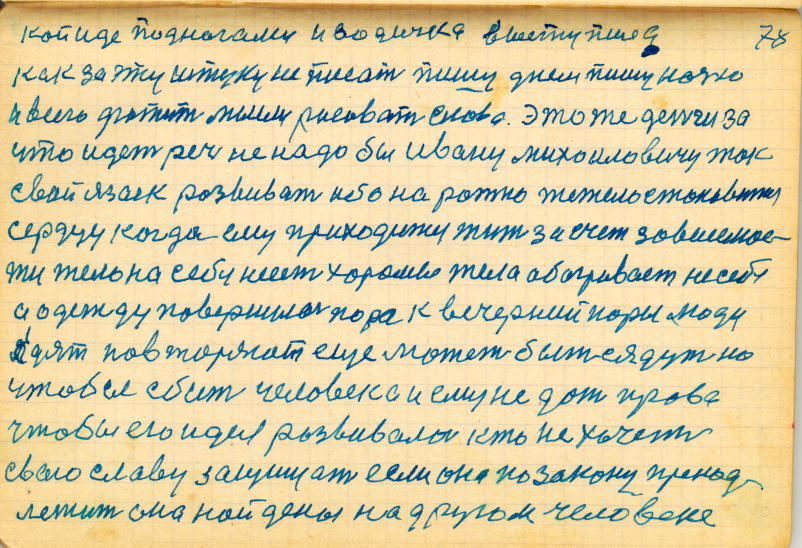 кой иде подногами и водичка выступила 78
как за эту штуку не писат пишу днем пишу ночю
и всего фотит мыли рисоват слова. Это же дети за
что идет реч не надо бы Ивану михаиловичу так
свой язаек розвиват ибо на ротно тежело становитца
сердцу когда ему приходитца тит за счет зовисемос
ти тело на себи несет хорошье тела обогривает не себе
а одежду повернулас пора к вечерний поры люди
едят повторяют еще может быт сядут но
чтобы сбит человека и ему не дат права
чтобы его идея розвивалас кто не хочет
свою славу защищат если она по закону пренад
лежит она найдены на другом человеке